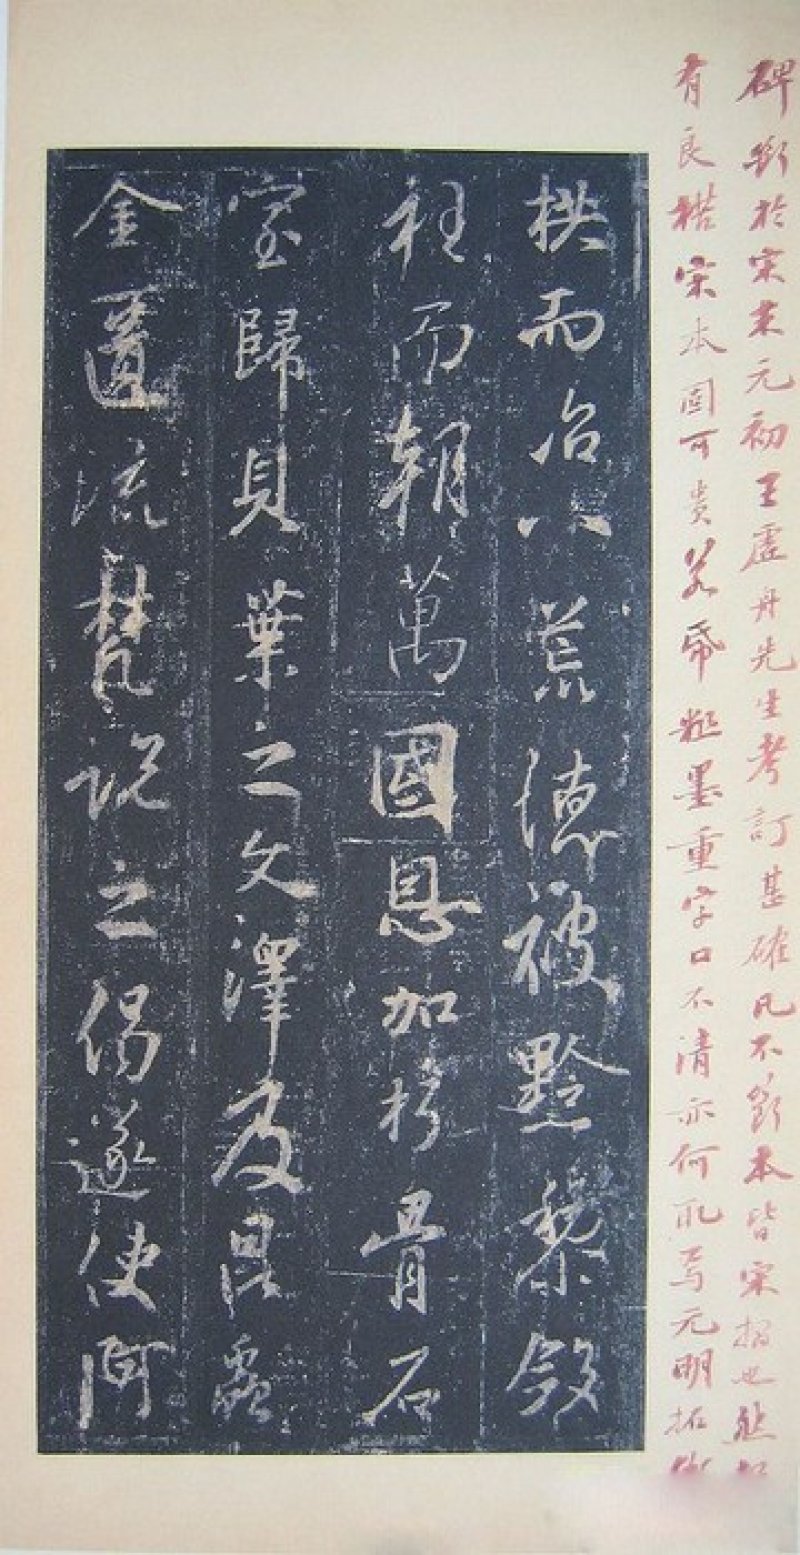 碑斷於宋末元初王虛舟先生考訂甚確凡不斷本皆宋搨也然
有良楛宋本固可貴若帋粗墨重字口不清亦何取焉元明拓
拱而治八荒德被黔黎斂
衽而朝萬國恩加朽骨石
室歸貝葉之文澤及昆蟲
金匱流梵說之偈遂使阿